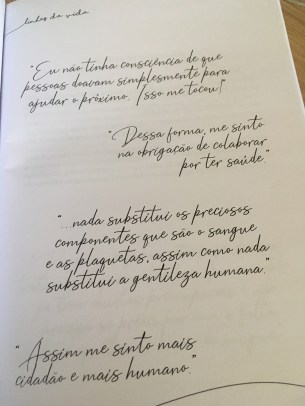 linhas da vida
"Eu não tinha consciência de que
pessoas doavam simplesmente para
ajudar o próximo. Isso me tocou!"
"Dessa forma, me sinto
na obrigação de colaborar
por ter saúde."
"...nada substitui os preciosos
componentes que são o sangue
e as plaquetas, assim como nada
substitui a gentileza humana."
"Assim me sinto mais
cidadão e mais humano."